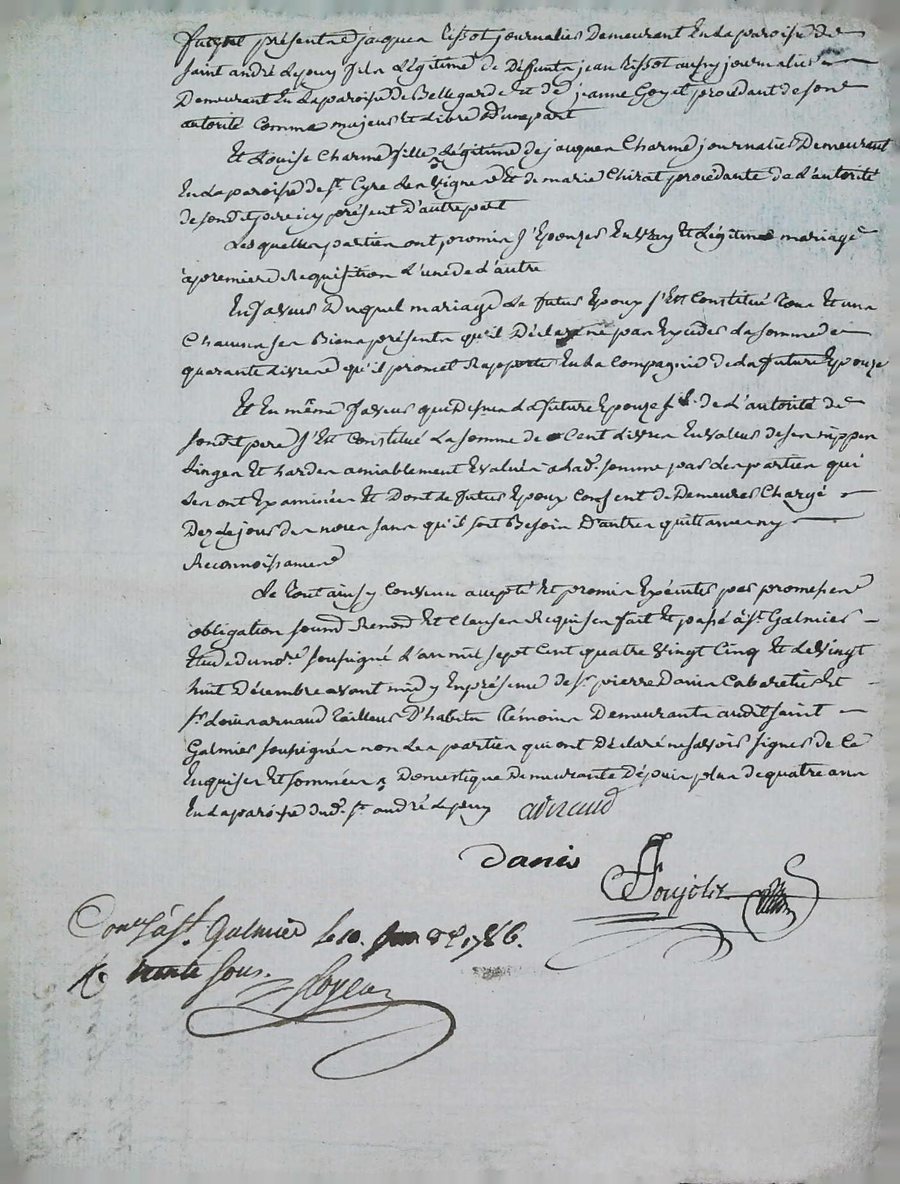 présent jacques Pissot journalier Demeurant En la paroisse de
saint andré Lepuy fils Légitime de Deffunts jean Pissot aussy journalier
Demeurant En la paroisse de Bellegarde Et de jeanne Goyet procédant de son
autorité Comme majeur Et Libre D'une part
Et Louise Charme fille Légitime de jacques Charme journalier Demeurant
En la paroisse de st. Cyre Les vignes Et de marie Chirat procédante de L'autorité
de sondit pere icy présent D'autre part
Les quelles parties ont promis s'Epouzer En vray Et Légitime mariage
à premiere Requisition L'une de L'autre
En faveur Duquel mariage Le futur Epoux s'Est Constitué tous Et uns
Chacuns ses Biens présents qu'il Déclare ne pas Excéder La somme de
quarante Livres qu'il promet Rapporter En La Compagnie de La future Epouze
Et En même faveur que Dessus La future Epouze de L'autorité de
sondit pere s'Est Constitué La somme de Cent Livres En valeur de ses nippes
Linges Et hardes amiablement Evalués a lad. somme par Les parties qui
Les ont Examinées Et Dont Le futur Epoux Consent de Demeurer Chargé
Dez Le jour des noces sans qu'il soit Besoin D'autres quittances ny
Reconnoissance
Le tout ainsy Convenu accepté Et promis Exécuter par promesses
obligation soumd. Renond. Et Clauses Requises fait Et passé à st. Galmier
Etude du nore. soussigné L'an mil sept Cent quatre vingt Cinq Et Le vingt
huit Décembre avant midy En présence de sr. pierre Danis Cabaretier Et
sr. Louis arnaud tailleur D'habits témoins Demeurants audit saint
Galmier soussignés non Les parties qui ont Déclaré ne savoir signer de Ce
Enquises Et sommées Domestique Demeurante Depuis plus de quatre ans
En La paroisse dud. st. andré Lepuy
Danis
Conlé à st. Galmier le 10. 1786.
R. trente sous.